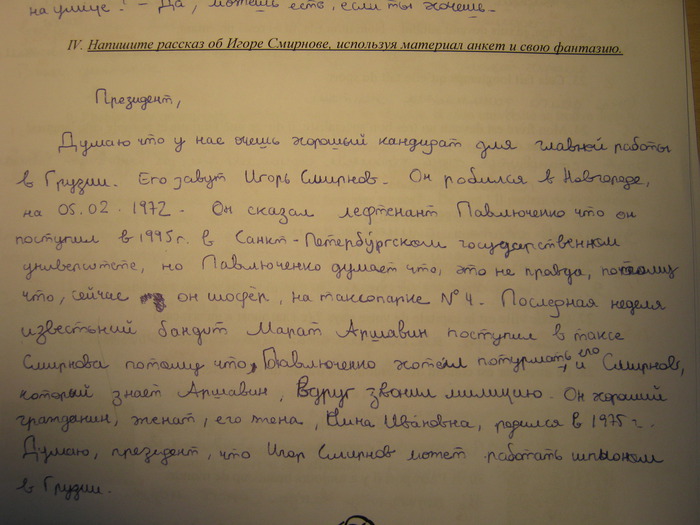 на улице! – Да, можешь есть, если ты хочешь.
IV. Напишите рассказ об Игоре Смирнове, используя материал анкет и свою фантазию.
Президент,
Думаю что у нас очешь хороший кандидат для главной работы
в Грузии. Его завут Игорь Смирнов. Он робился в Новгороде,
на 05.02.1972. Он сказал лефтенант Павлюченко что он
поступил в 1995г. в Санкт-Петербургском государственном
университете, но Павлюченко думает что, это не правда, потому
что, сейчас он шофёр, на таксопарке № 4. Последная неделя
известьний бандит Марат Аршавин поступил в таксе
Смирнова потому что, Павлюченко хотел потурмать его, и Смирнов,
который знает Аршавин, вдруг звонил милицию. Он хороший
гражданин, женат, его жена, Нина Ивановна, родился в 1975 г.
Думаю, президент, что Игор Смирнов может работать шпыоном
в Грузии.